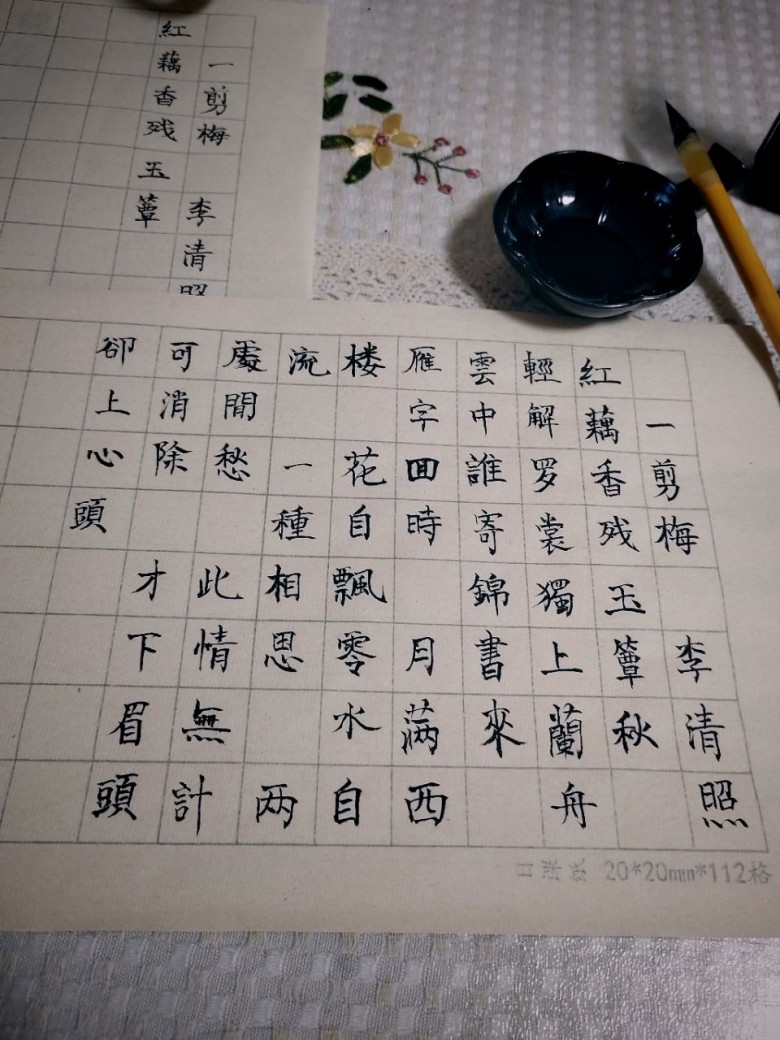 一剪梅 李清照
紅藕香残玉簟
一剪梅 李清照
紅藕香残玉簟秋
輕解罗裳獨上蘭舟
雲中誰寄錦書來
雁字回時 月满西
楼 花自飄零水自
流 一種相思 两
處閒愁 此情無計
可消除 才下眉頭
卻上心頭
20*20mm*112格